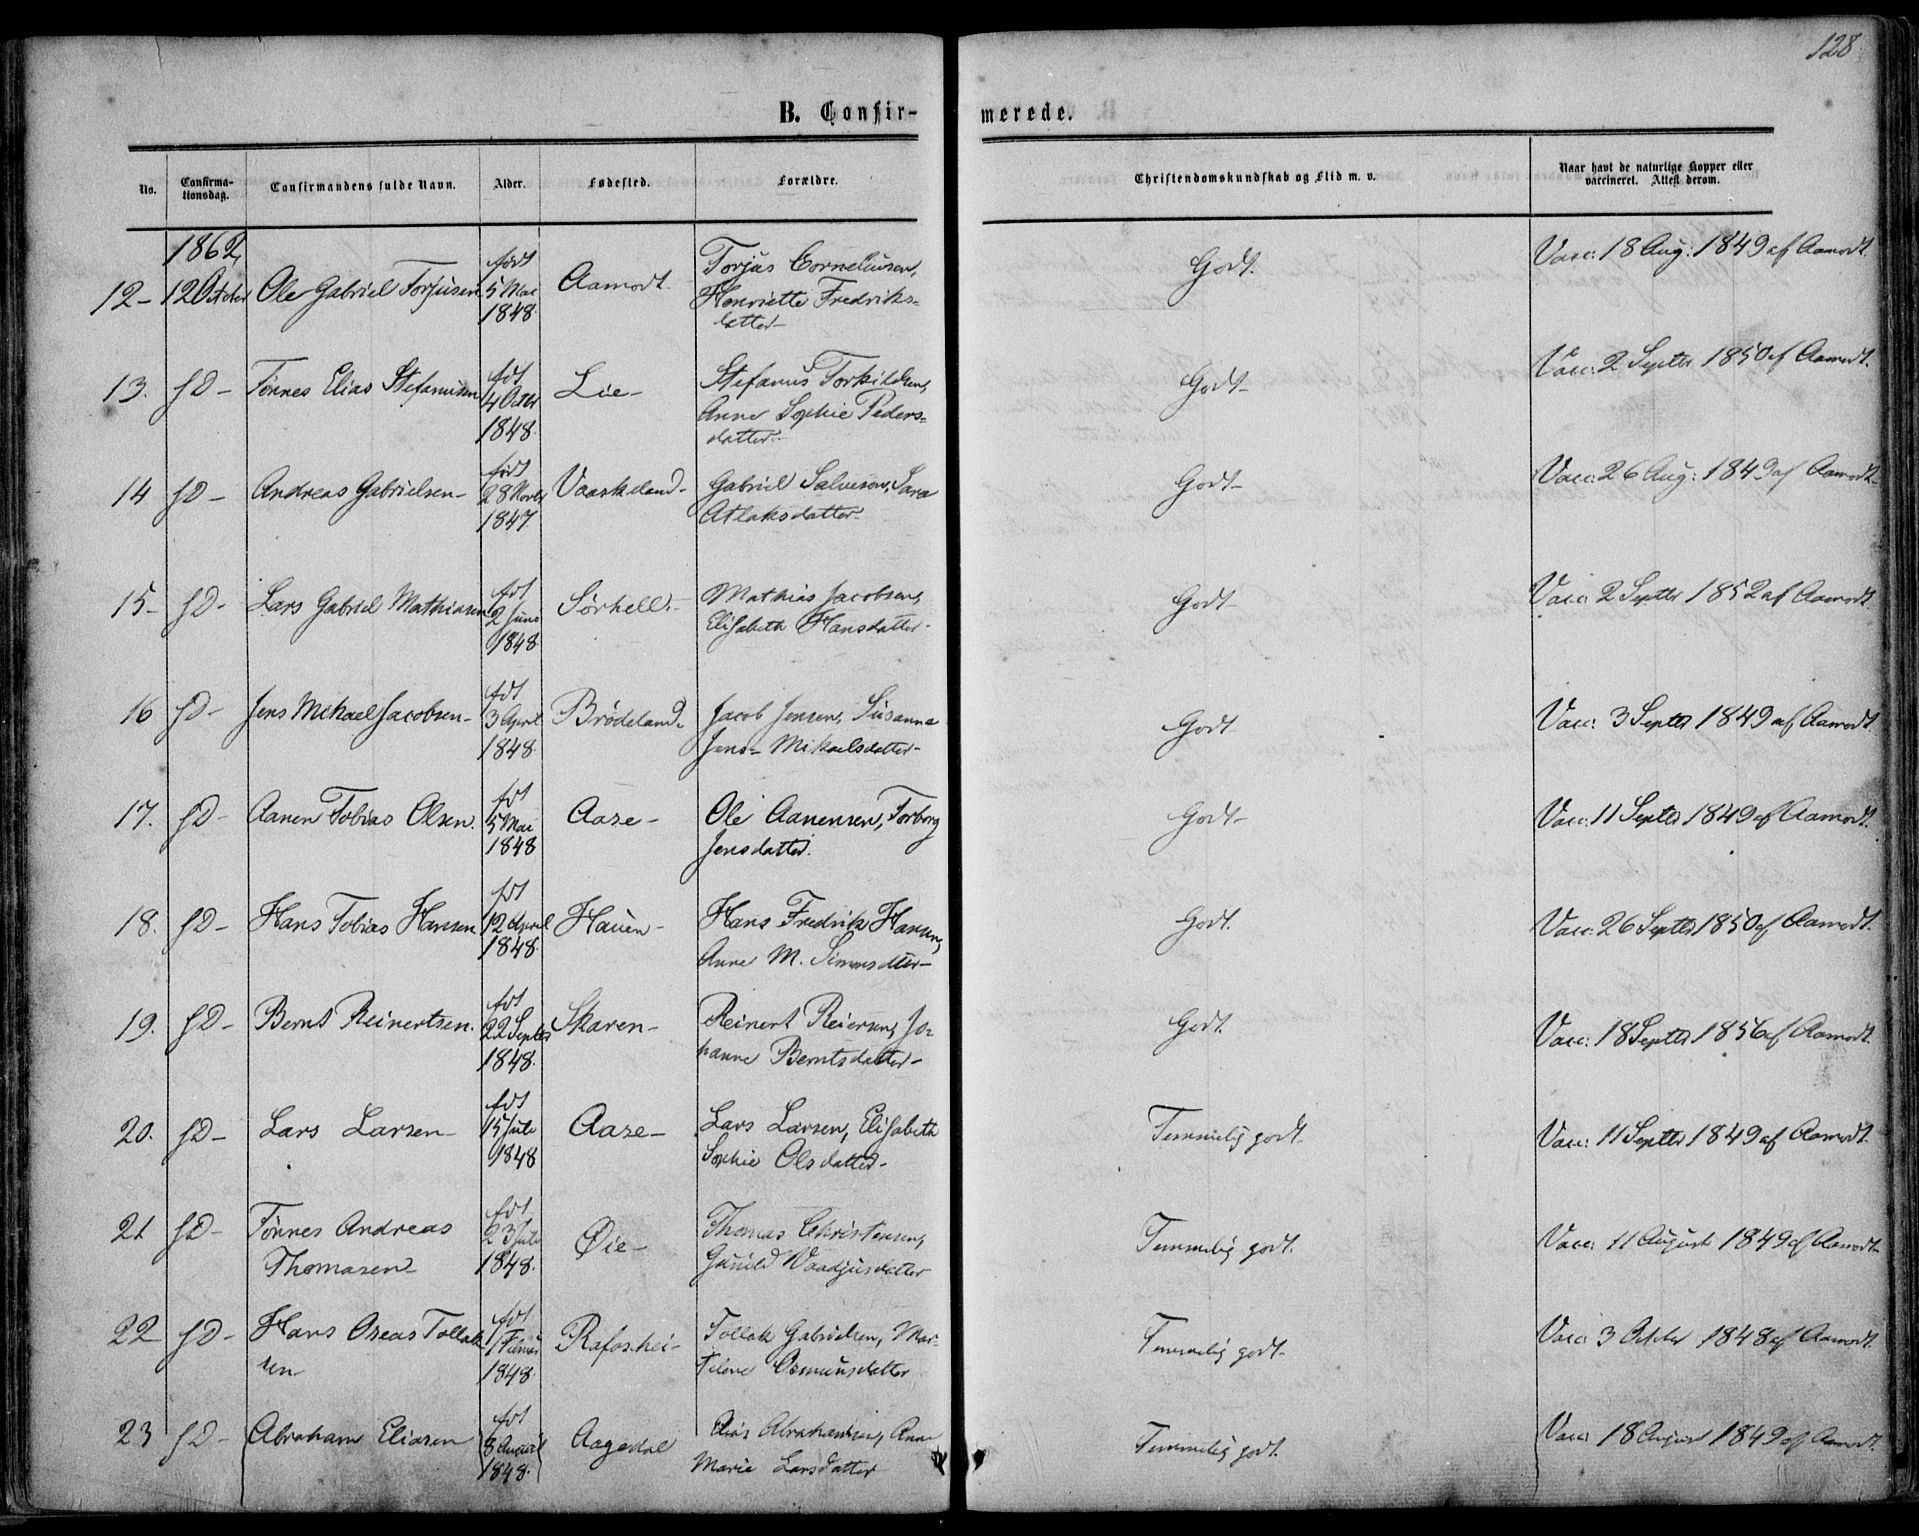 128
B. Confir-
merede.
No.
Confirma-
tionsdag.
Confirmandens fulde Navn.
Alder.
Fødested.
Forældre.
Christendomskundskab og Flid m. v.
Naar havt de naturlige Kopper eller
vaccineret. Attest derom.
1862
12- 12 October Ole Gabriel Torjusen født 5 Mai 1848 Aamodt. Torjus Corneliusen, Henriette Fredriks-
datter- Godt. Vacc: 18 Aug: 1849 af Aamodt.
13. sD- Tønnes Elias Stefanusen fdt 4 Octbr 1848. Lie- Stefanus Torkildsen, Anne Sophie Peders-
datter- Godt- Vacc: 2 Septbr 1850 af Aamodt.
14 sD- Andreas Gabrielsen- født 28 Novbr 1847 Vaaskeland- Gabriel Salvesen, Sara
Atlaksdatter- Godt- Vacc: 26 Aug: 1849 af Aamodt-
15- sD- Lars Gabriel Mathiasen fdt 2 Juni 1848. Sørhell.- Mathias Jacobsen,
Elisabeth Hansdatter- Godt- Vacc: 2 Septbr 1852 af Aamodt.
16 sD- Jens Mikael Jacobsen- fdt 3 April 1848. Brødeland- Jacob Jensen, Susanna
Jens- Mikaelsdatter- Godt- Vacc: 3 Septbr 1849 af Aamodt.
17. sD- Aanen Tobias Olsen. fdt 5 Mai 1848 Aase- Ole Aanensen, Torborg
Jensdatter. Godt- Vacc: 11 Septbr 1849 af Aamodt.
18. sD- Hans Tobias Hansen fdt 12 April 1848. Hauen- Hans Fredrik Hansen,
Anne M. Simonsdtter- Godt. Vacc: 26 Septbr 1850 af Aamodt.
19. sD- Bernt Reinertsen. fdt 22 Septbr 1848. Skaren- Reinert Reiersen, Jo-
hanne Berntsdatter- Godt. Vacc: 18 Septbr 1856 af Aamodt.
20. sD- Lars Larsen- fdt 15 Juli 1848 Aase- Lars Larsen, Elisabeth
Sophie Olsdatter- Temmelig godt. Vacc: 11 Septbr 1849 af Aamodt.
21 sD- Tønnes Andreas
Thomasen- fdt 23 Juli 1848. Øie- Thomas Christensen,
Gunild Vaadjusdatter Temmelig godt. Vacc: 11 August 1849 af Aamodt-
22 sD- Hans Oreas Tollak
sen- fdt 1848. Rafoshei- Tollak Gabrielsen, Mar-
tilene Osmunsdatter Temmelig godt. Vacc: 3 Octbr 1848 af Aamodt.
23 sD- Abraham Eliasen fdt 8 1848. Aagedal Elias Abrahamsen, Anne
Marie Larsdatter Temmelig godt. Vacc: 18 August 1849 af Aamodt.